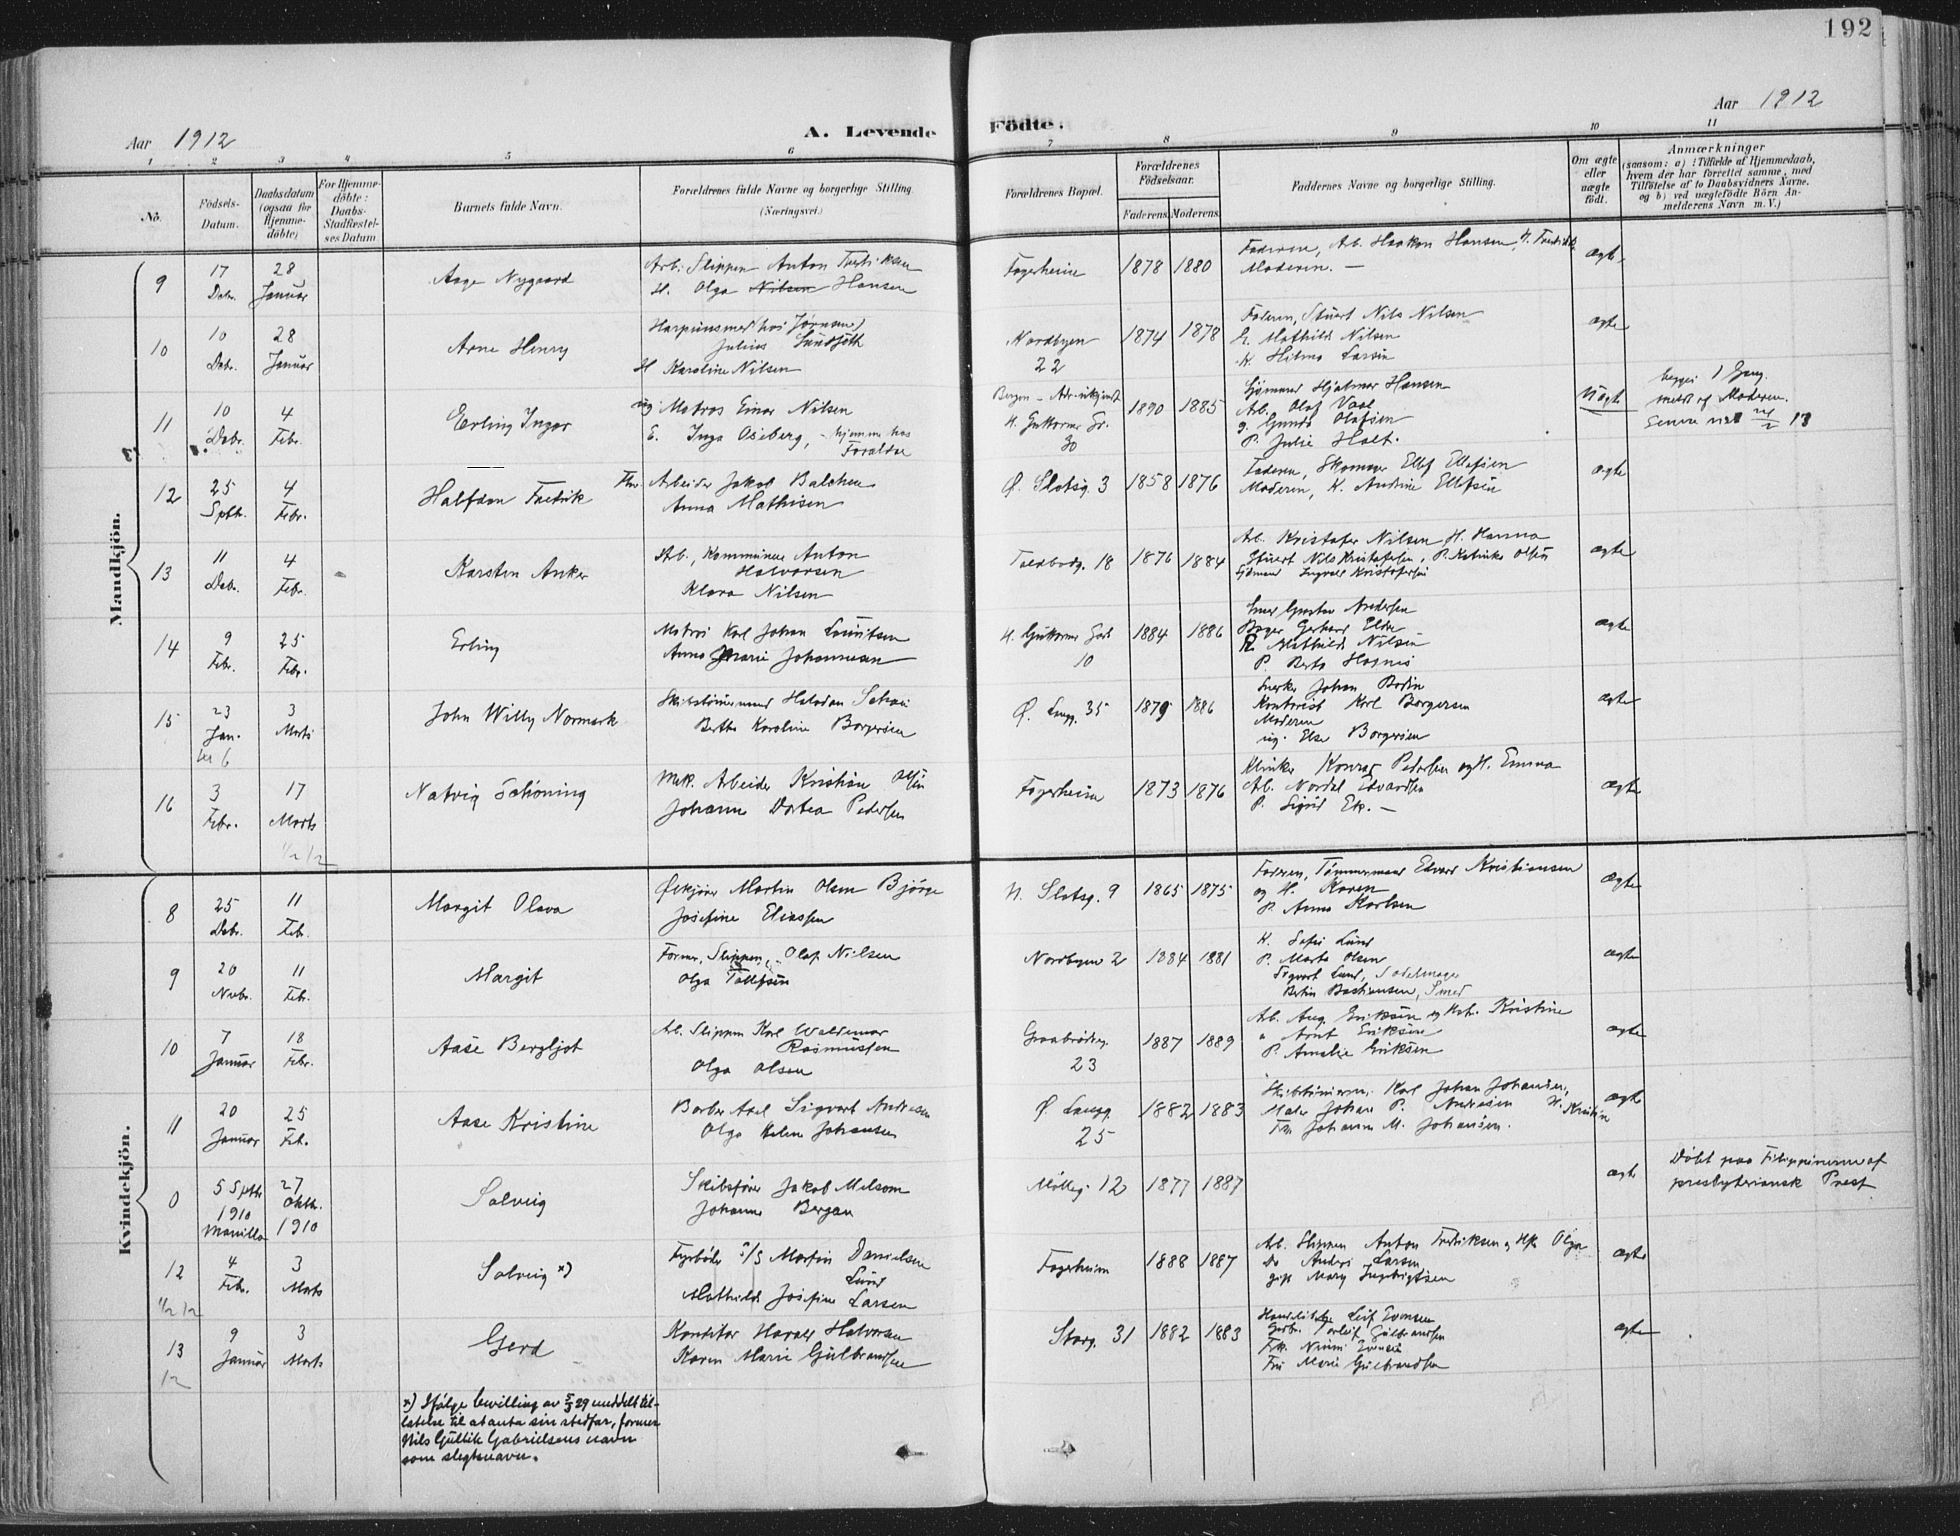 192
Aar 1912
A. Levende
Födte.
Aar 1912
1 2 3 4 5 6 7 8 9 10 11
No.
Födsels-
Datum.
Daabsdatum
(ogsaa for
Hjemme-
döbte)
For Hjemme-
döbte:
Daabs-
Stadfæstel-
ses Datum
Barnets fulde Navn.
Forældrenes fulde Navne og borgerlige Stilling.
(Næringsvei.)
Forældrenes Bopæl.
Forældrenes
Födselsaar.
Faderens. Moderens.
Faddernes Navne og borgerlige Stilling.
Om ægte
eller
uægte
födt.
Anmærkninger
(saasom: a) i Tilfælde af Hjemmedaab,
hvem der har forrettet samme, med
Tilföielse af to Daabsvidners Navne,
og b) ved uægtefödte Börn An-
melderens Navn m. V.)
Mandkjön.
9
17
Debr.
28
Januar
Aage Nygaard
Arb. Slippen Anton Fredriksen
H. Olga Nilsen Hansen
Fagerheim
1878 1880
Faderen, Arb. Haakon Hansen, H. Fredrikke
Moderen. —
ægte
10
10
Debr.
28
Januar
Arne Henry
Julius
H Karoline Nilsen
Nordbyen
22
1874 1878
Faderen, Stuert Nils Nilsen
H. Mathilde Nilsen
H. Hilma Larsen
ægte
11
10
Debr.
4
Febr.
Erling Ingar
ug. Matros Einar Nilsen
E. Inga Oseberg, - hjemme hos
Forældre
Bergen
H. Guttorms G.
30
1890 1885
Sjømand Hjalmar Hansen
Arb. Olaf
g. Gunda Olafsen
P. Julie Holt.
Uægte
begges 1 Gang.
meldt af Moderen.
12
25
Septb.
4
Febr.
Halfdan Fredrik
Arbeider Jakob Balchen
Anna Mathisen
Ø. Slotsg. 3
1858 1876
Faderen, Skomager Ellef Ellefsen
Moderen, K. Andrine Ellefsen
ægte
13
11
Debr.
4
Febr.
Karsten Anker
Arb., Kommunen Anton
Halvorsen
Klara Nilsen
Tolbodg. 18
1876 1884
Arb. Kristofer Nilsen H. Hanna
Stuert Nils Kristofersen, P. Katinka Olsen
Sjömand Ingvald Kristofersen
ægte
14
9
Febr.
25
Febr.
Erling
Matros Karl Johan Lauritsen
Anna Marie Johannesen
H. Guttorms Gade
10
1884 1886
Smed Gustav Andersen
Bager Gerhard
P. Mathilde Nilsen
P. Berta
ægte
15
23
Jan.
3
Marts
John Willy Normark
Skibstømmermand Halvdan
Berthe Karoline Borgersen
Ø. Langg. 35
1879 1886
Snerker Johan Bodin
Kontorist Karl Borgersen
Moderen
ug. Else Borgersen
ægte
16
3
Febr.
17
Marts
Natvig Schöning
Mek. Arbeider Kristian Olsen
Johanne Dortea Pedersen
Fagerheim
1873 1876
Klinker Konrad Pedersen og H. Emma
Arb. Nordal Edvardsen
P. Sigrid Ek. —
ægte
Kvindekjön.
8
25
Debr.
11
Febr.
Margit Olava
Martin Olsen Bjørge
Josefine Eliassen
N. Slotsg. 9
1865 1875
Faderen, Tømmermand Edvard Kristiansen
og H. Karen
P. Anna Karlsen
ægte
9
20
Novbr.
11
Febr.
Margit
Former, Slippen, Olaf Nilsen
Olga Tollefsen
Nordbyen 2
1884 1881
K. Sofie Lund
P. Marta Olsen
Sigvart Lund, Sadelmager
Bertin Bastiansen, Smed
ægte
10
7
Januar
18
Febr.
Aase Bergljot
Arb. Slippen Karl Waldemar
Rasmussen
Olga Olsen
Graabrödreg.
23
1887 1889
Arb. Aug. Eriksen og Kristine
" Arnt Eriksen
P. Amalie Eriksen
ægte
11
20
Januar
25
Feb.
Aase Kristine
Barber Axel Sigvart Andresen
Olga Helene Johansen
Ø. Langg.
25
1882 1883
Skibstömmerm. Karl Johan Johansen,
Maler Johan P. Andresen H. Kristine
Frk Johanne M. Johansen.
ægte
0
5 Septb
1910
Manilla
27
Oktb.
1910
Solveig
Skibsfører Jakob Melsom
Johanne Bergan
Mölleg. 12
1877 1887
ægte
Döbt paa Filippinerne af
presbyteriansk Prest.
12
4
Febr.
3
Marts
Solveig x)
Fyrböder S/S Martin Danielsen
Lund
Mathilde Josefine Larsen
Fagerheim
1888 1887
Arb. Slippen Anton Fredriksen og Hst. Olga
Do Anders Larsen
gift Mary Ingebrigtsen
ægte
13
9
Januar
3
Marts
Gerd
Konditor Harald Halvorsen
Karen Marie Gulbrandsen
Storg. 31
1882 1883
Leif Evensen
Gulbrandsen
Frk. Evensen
Fru Marie Gulbrandsen
ægte
x) Ifølge bevilling av 5/3 29 meddelt til-
latelse til at anta sin stedfar, former
Nils Gullik Gabrielsens navn
som slegtsnavn.